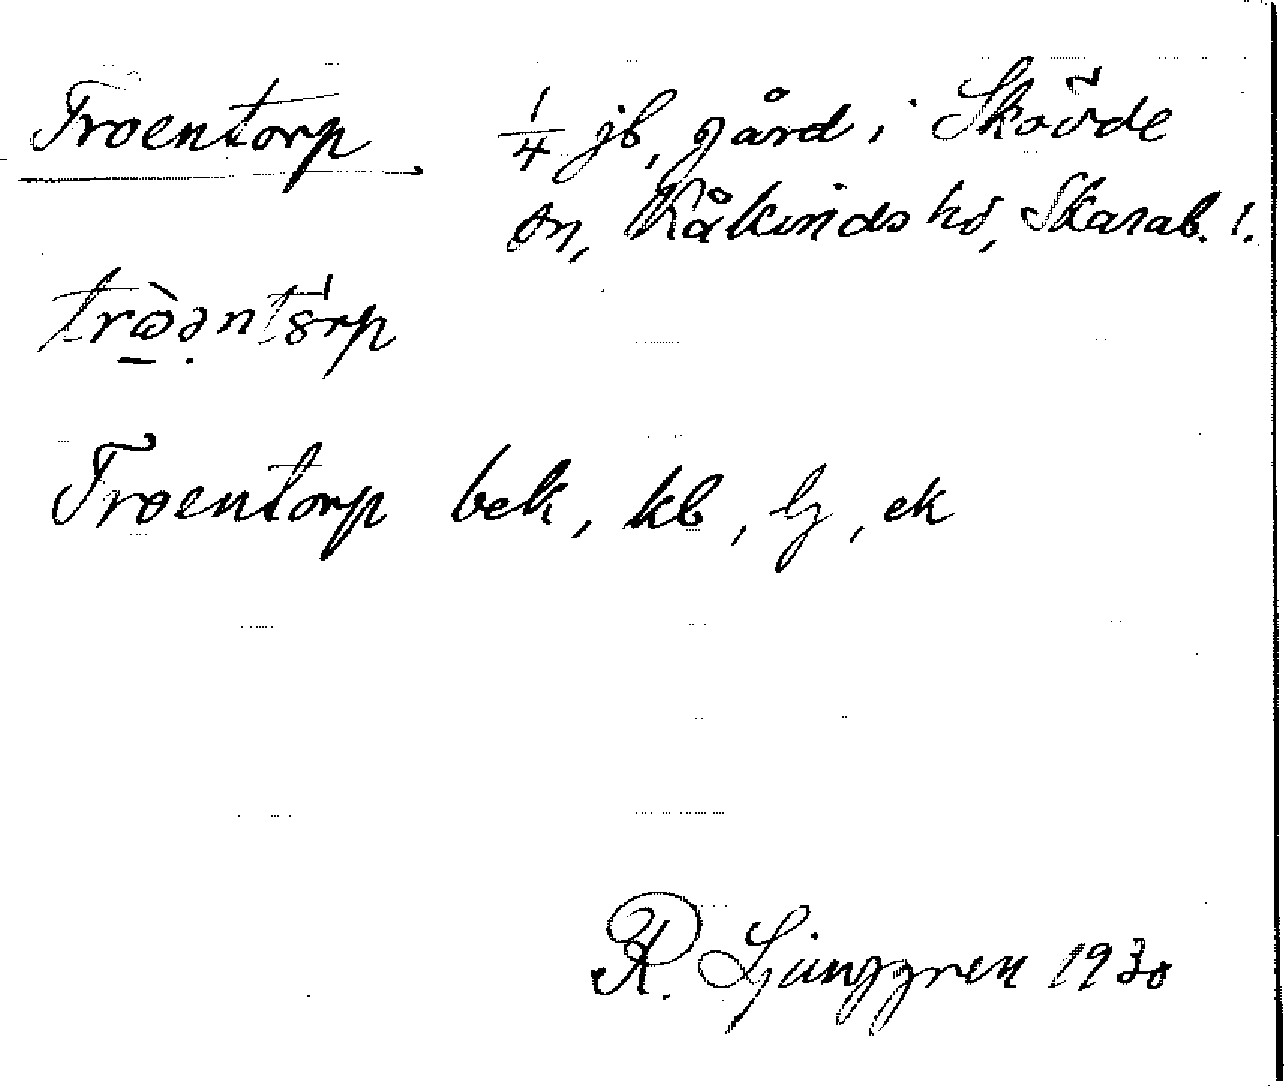 Troentorp 1/4 jb, gård i Skövde
sn, Kåkinds hd, Skarab. l.
Troentorp bek, kb, lj, ek
R. Ljunggren 1930